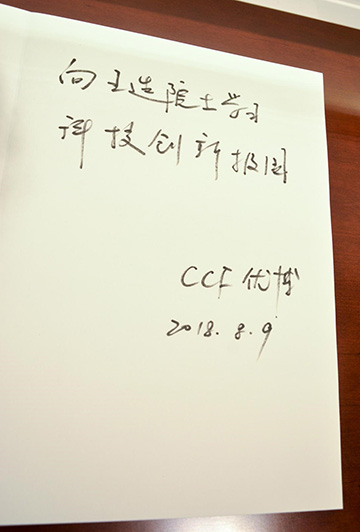 向王选院士学习
科技创新报国
CCF优博
2018.8.9